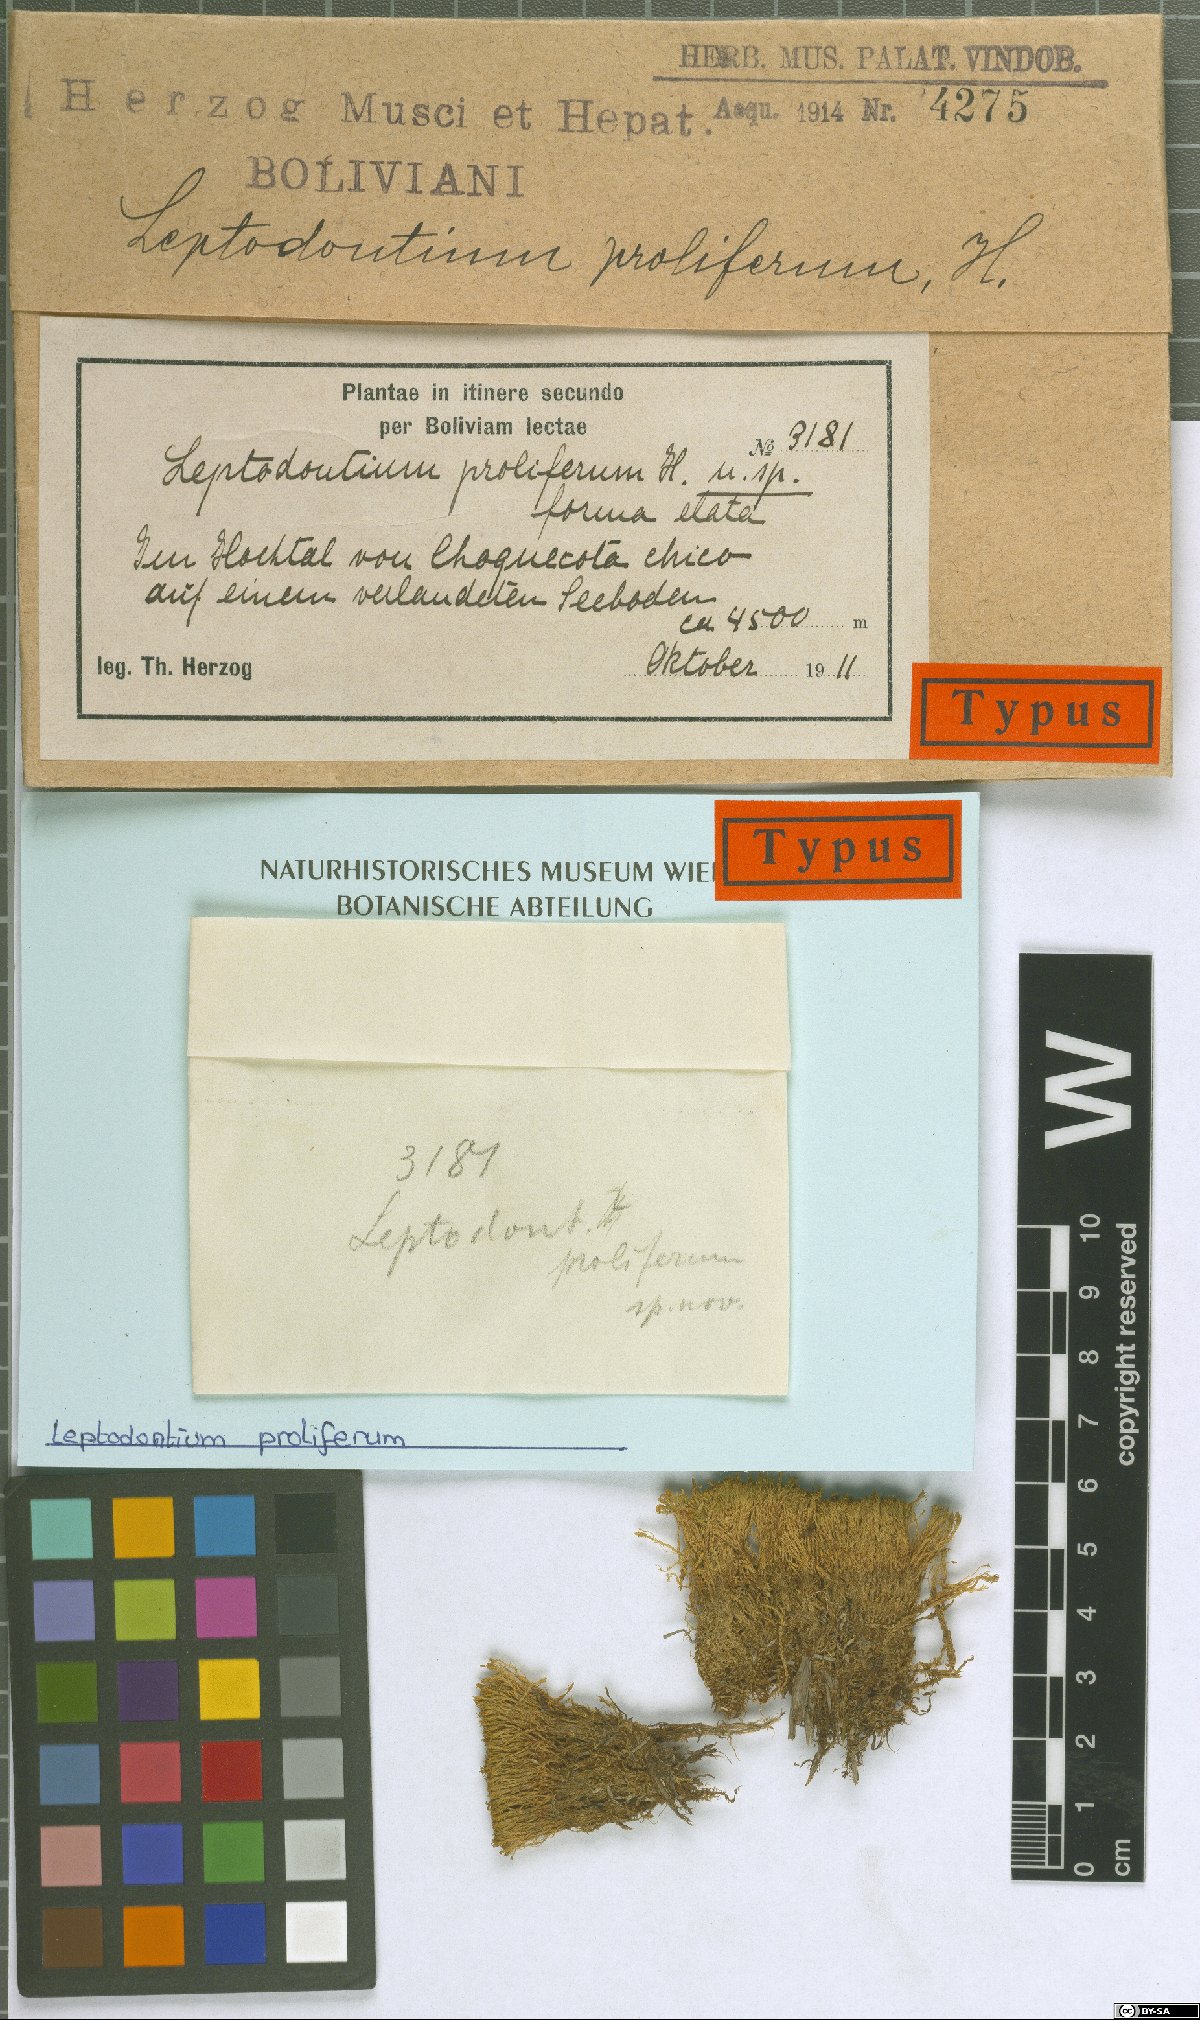 HERB. MUS. PALAT. VINDOB.
Herzog Musci et Hepat. Acqu. 1914 Nr. 4275
BOLIVIANI
Leptodontium proliferum, H.
Plantae in itinere secundo
per Boliviam lectae
№ 3181
Leptodontium proliferum H. n. sp.
forma elata
Im Hochtal von Choquecota chico
auf einem verlandeten Seeboden
ca 4500 m
leg. Th. Herzog Oktober 1911
Typus
Typus
NATURHISTORISCHES MUSEUM WIE
BOTANISCHE ABTEILUNG
3181
Leptodont. H
proliferum
sp. nov.
Leptodontium proliferum
W
0 1 2 3 4 5 6 7 8 9 10
cm
copyright reserved
cc BY-SA